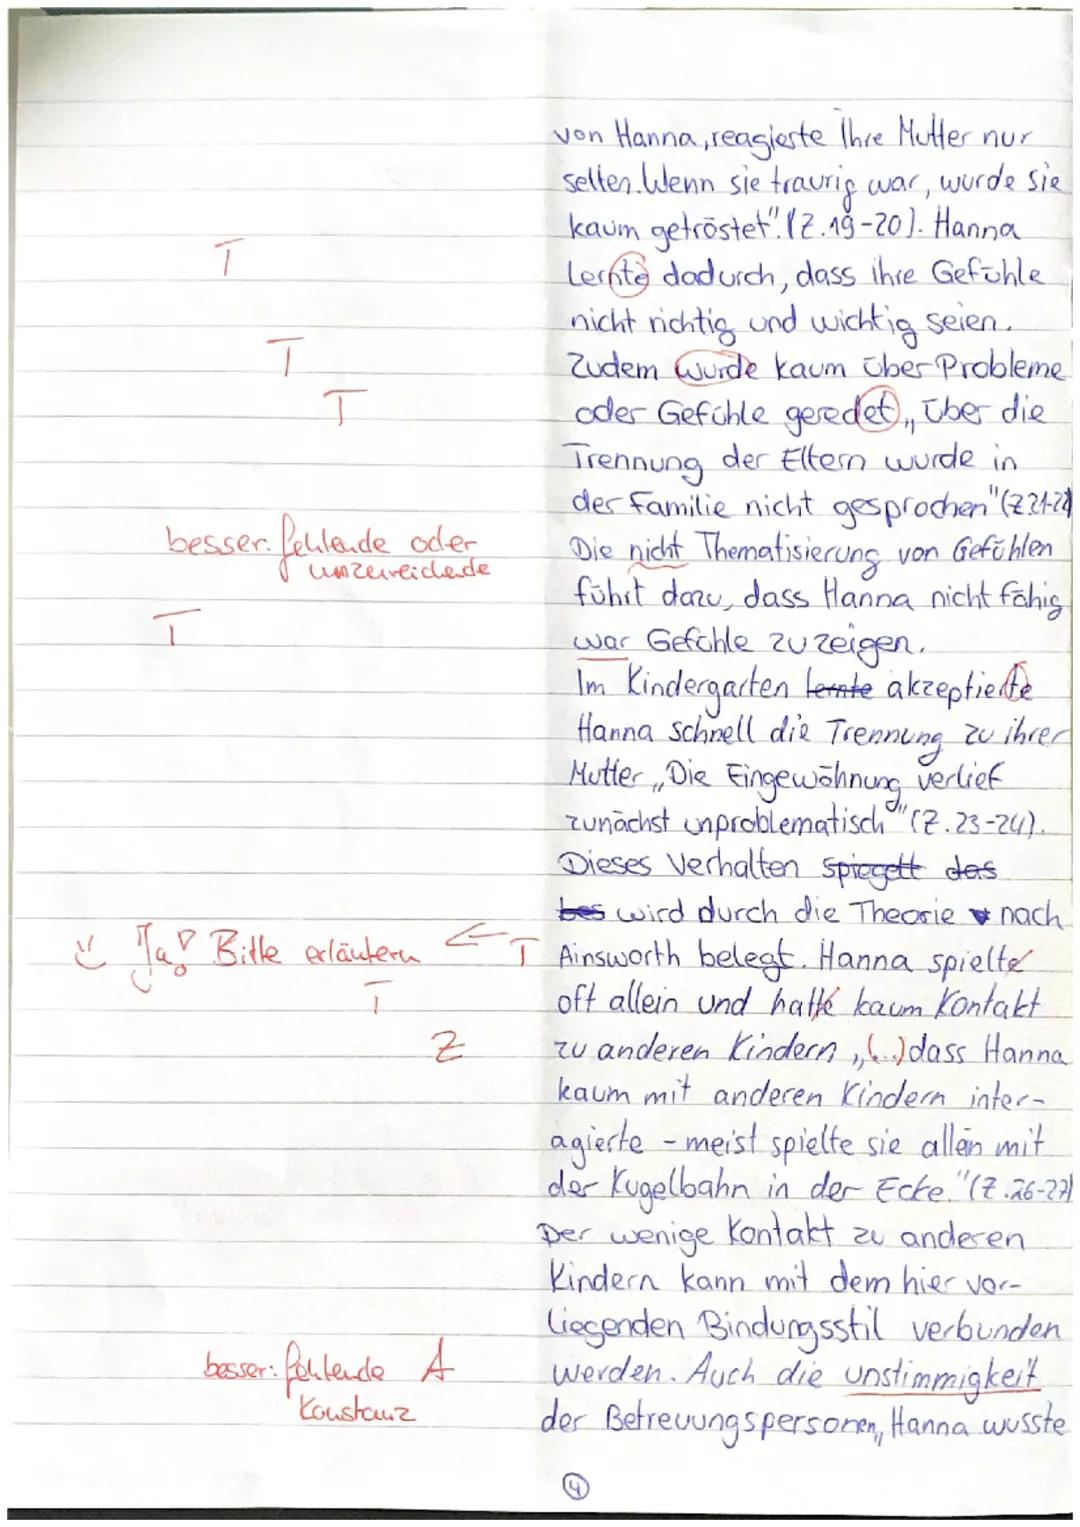 von Hanna, reagierte Ihre Mutter nur
selten. Wenn sie traurig war, wurde sie
kaum getröstet". (Z.19-20). Hanna
T
lernte dadurch, dass ihre Gefühle
nicht richtig und wichtig seien.
T
Zudem wurde kaum über Probleme
T
oder Gefühle geredet „Über die
Trennung der Eltern wurde in
der Familie nicht gesprochen" (Z 21-22)
besser: fehlende oder
unzureichende
Die nicht Thematisierung von Gefühlen
führt dazu, dass Hanna nicht fähig
T
war Gefühle zu zeigen.
Im Kindergarten lernte akzeptierte
Hanna schnell die Trennung zu ihrer
Mutter „Die Eingewöhnung verlief
zunächst unproblematisch" (Z.23-24).
Dieses Verhalten spiegelt das
bes wird durch die Theorie nach
Ja! Bitte erläutern ← T
Ainsworth belegt. Hanna spielte
T
oft allein und hatte kaum Kontakt
Z
zu anderen Kindern „(...) dass Hanna
kaum mit anderen Kindern inter-
agierte - meist spielte sie allein mit
der Kugelbahn in der Ecke." (Z.26-27)
Der wenige Kontakt zu anderen
Kindern kann mit dem hier vor-
liegenden Bindungsstil verbunden
besser: fehlende A
Konstanz
werden. Auch die unstimmigkeit
der Betreuungspersonen „Hanna wusste
4